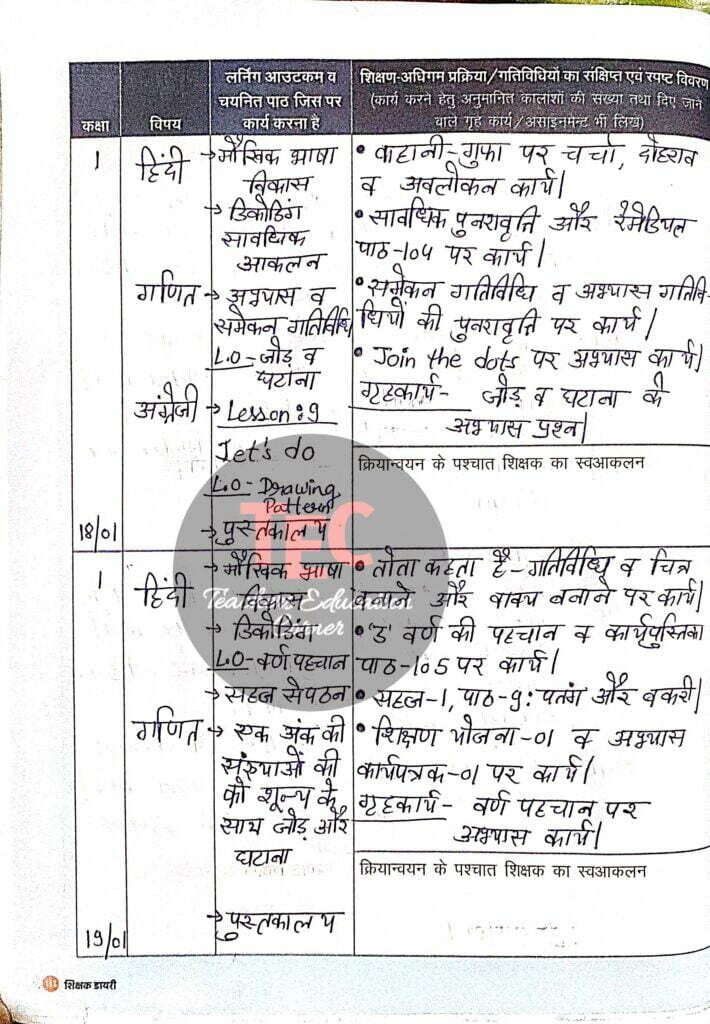 लर्निंग आउटकम व
चयनित पाठ जिस पर
कार्य करना है
शिक्षण-अधिगम प्रक्रिया/गतिविधियों का संक्षिप्त एवं स्पष्ट विवरण
(कार्य करने हेतु अनुमानित कालांशों की संख्या तथा दिए जाने
वाले गृह कार्य/असाइनमेन्ट भी लिखें)
कक्षा
विषय
1
हिंदी
→ मौखिक भाषा
विकास
→ डिकोडिंग
सावधिक
आकलन
• कहानी-गुफा पर चर्चा, दोहराव
व अवलोकन कार्य।
• सावधिक पुनरावृत्ति और रैमेडियल
पाठ-104 पर कार्य।
गणित
→ अभ्यास व
समेकन गतिविधि
L.O - जोड़ व
घटाना
• समेकन गतिविधि व अभ्यास गतिवि-
धियों की पुनरावृत्ति पर कार्य।
अंग्रेजी
→ Lesson:9
Let's do
L.O - Drawing
Pattern
→ पुस्तकालय
• Join the dots पर अभ्यास कार्य।
गृहकार्य- जोड़ व घटाना के
अभ्यास प्रश्न।
क्रियान्वयन के पश्चात शिक्षक का स्वआकलन
18/01
TEC
Teachers Education
Corner
1
हिंदी
→ मौखिक भाषा
विकास
→ डिकोडिंग
L.O - वर्ण पहचान
→ सहज से पठन
• तोता कहता है - गतिविधि व चित्र
बनाने और वाक्य बनाने पर कार्य।
• 'ड' वर्ण की पहचान व कार्यपुस्तिका
पाठ-105 पर कार्य।
• सहज-1, पाठ-9: पतंग और बकरी।
गणित
→ एक अंक की
संख्याओं की
को शून्य के
साथ जोड़ और
घटाना
→ पुस्तकालय
• शिक्षण योजना-01 व अभ्यास
कार्यपत्रक-01 पर कार्य।
गृहकार्य - वर्ण पहचान पर
अभ्यास कार्य।
क्रियान्वयन के पश्चात शिक्षक का स्वआकलन
19/01
शिक्षक डायरी